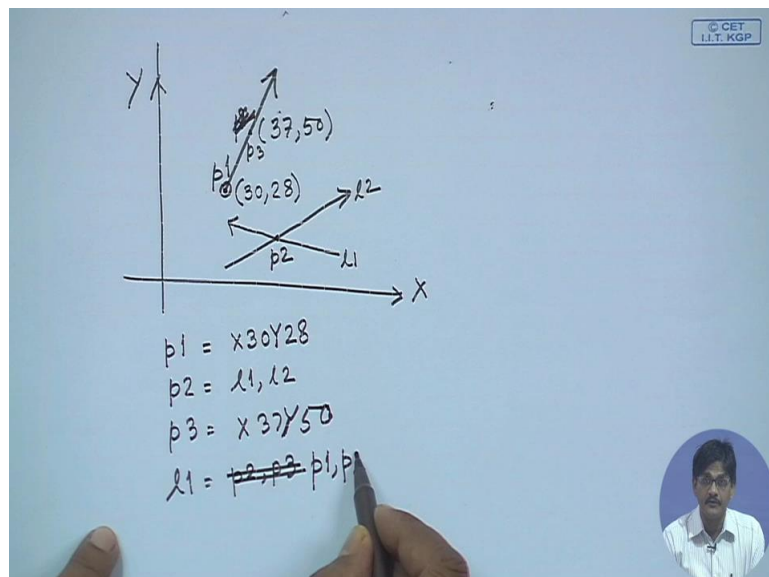 © CET
I.I.T. KGP
Y
(37,50)
p3
p1
(30,28)
l2
p2
l1
X
p1 = X30Y28
p2 = l1, l2
p3 = X37Y50
l1 = p2,p3 p1,p